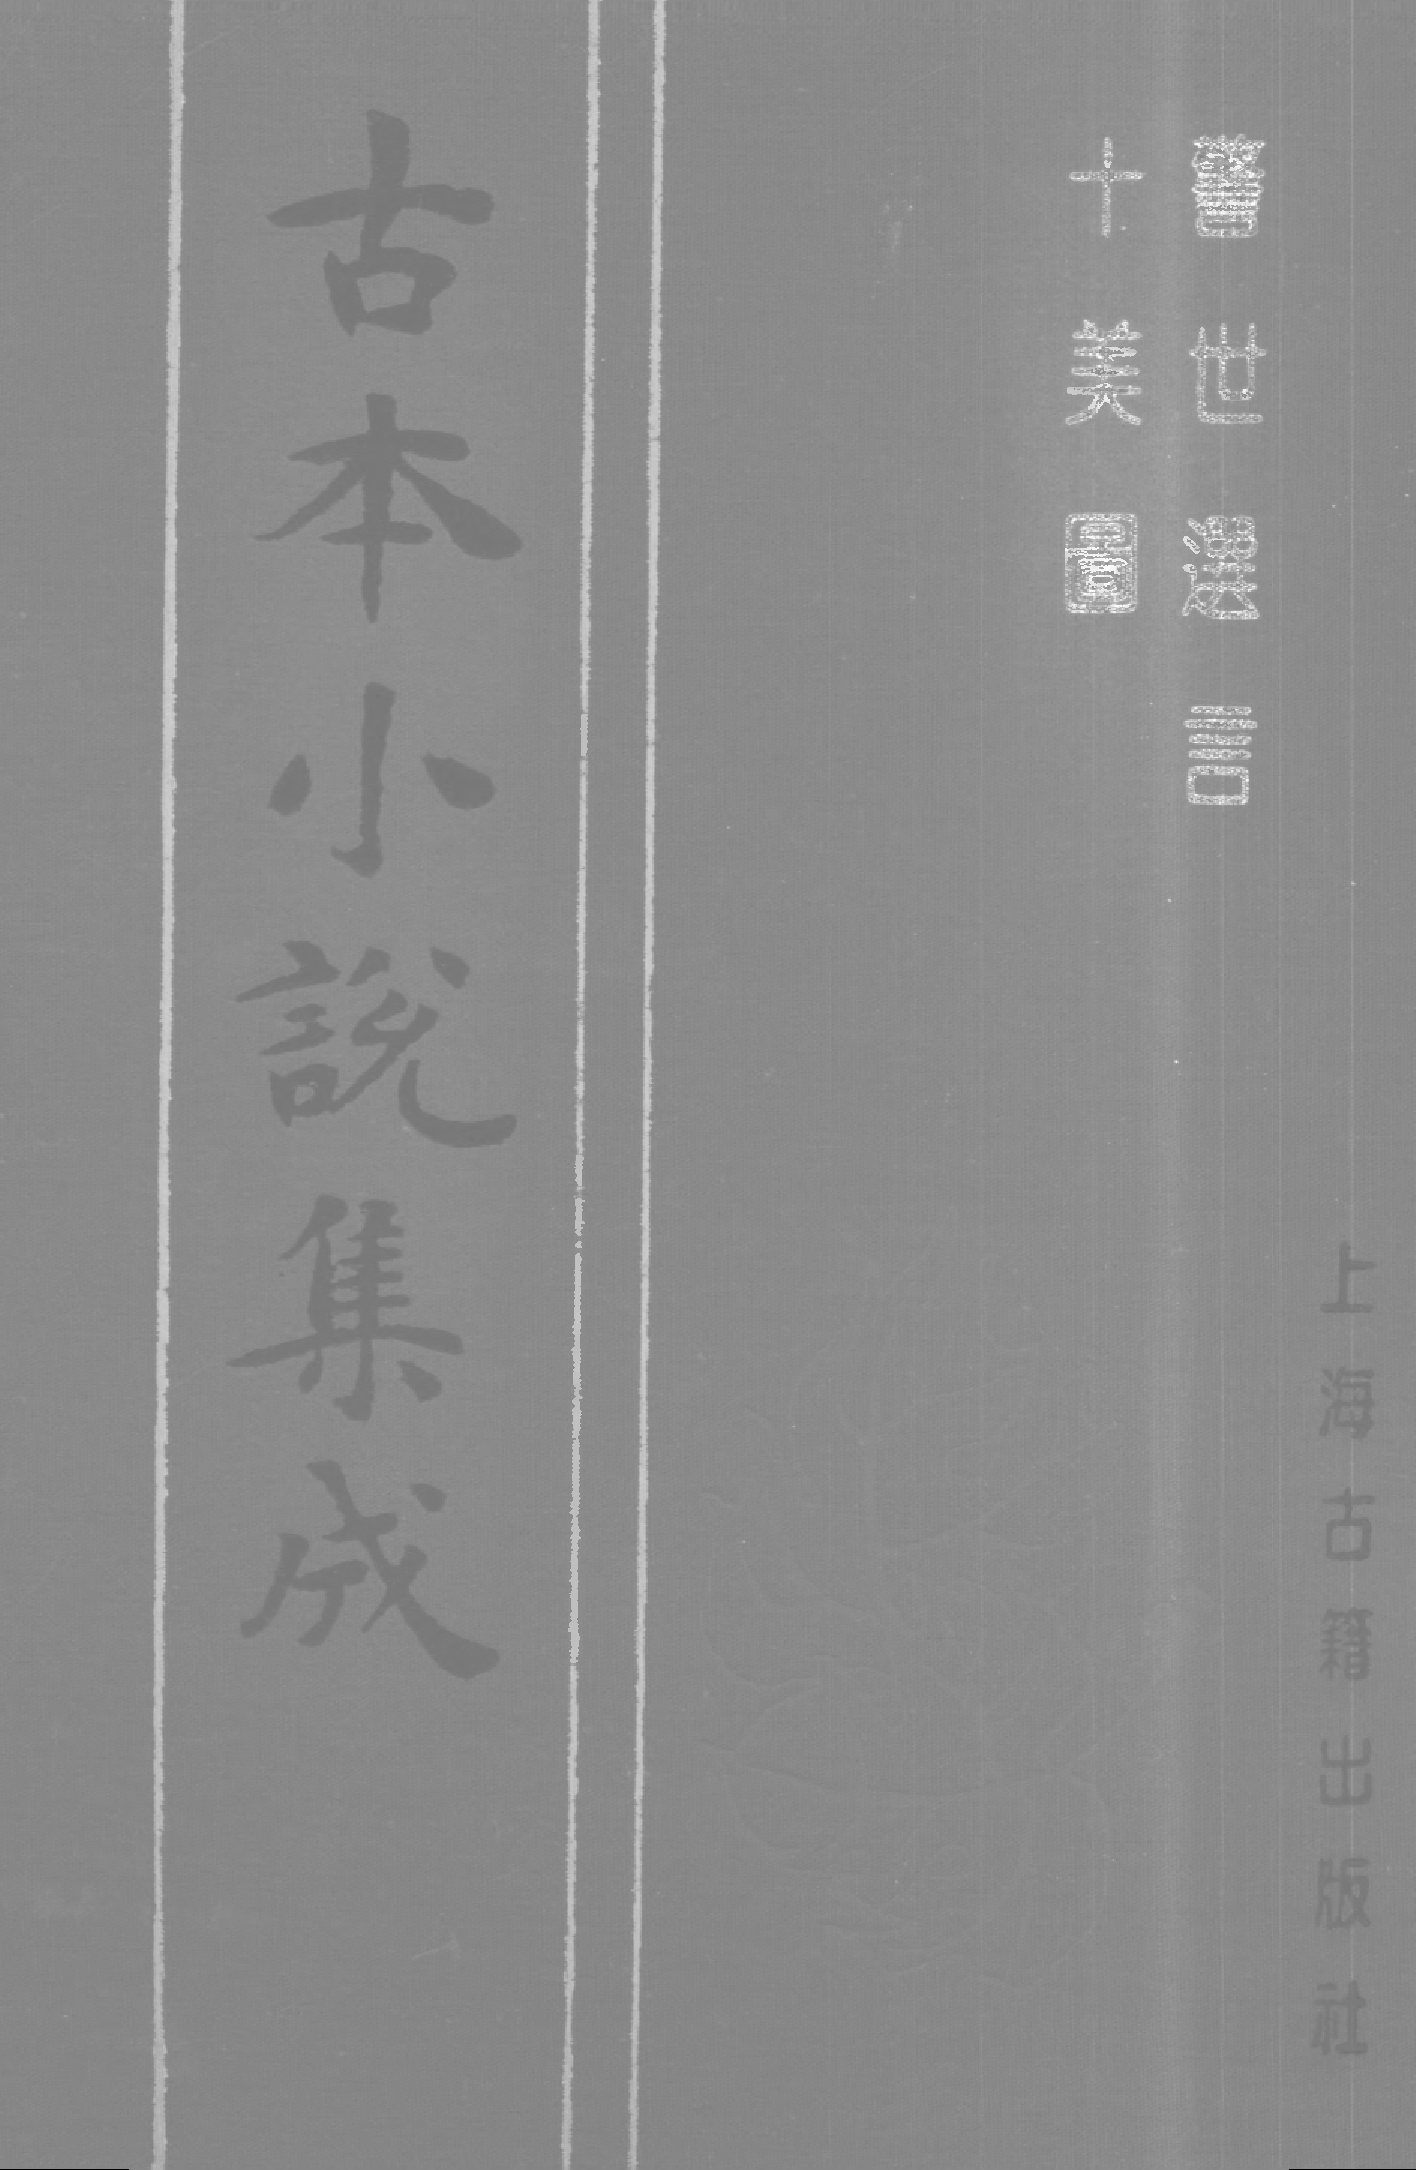 警世選言
十美圖
古本小説集成
上海古籍出版社